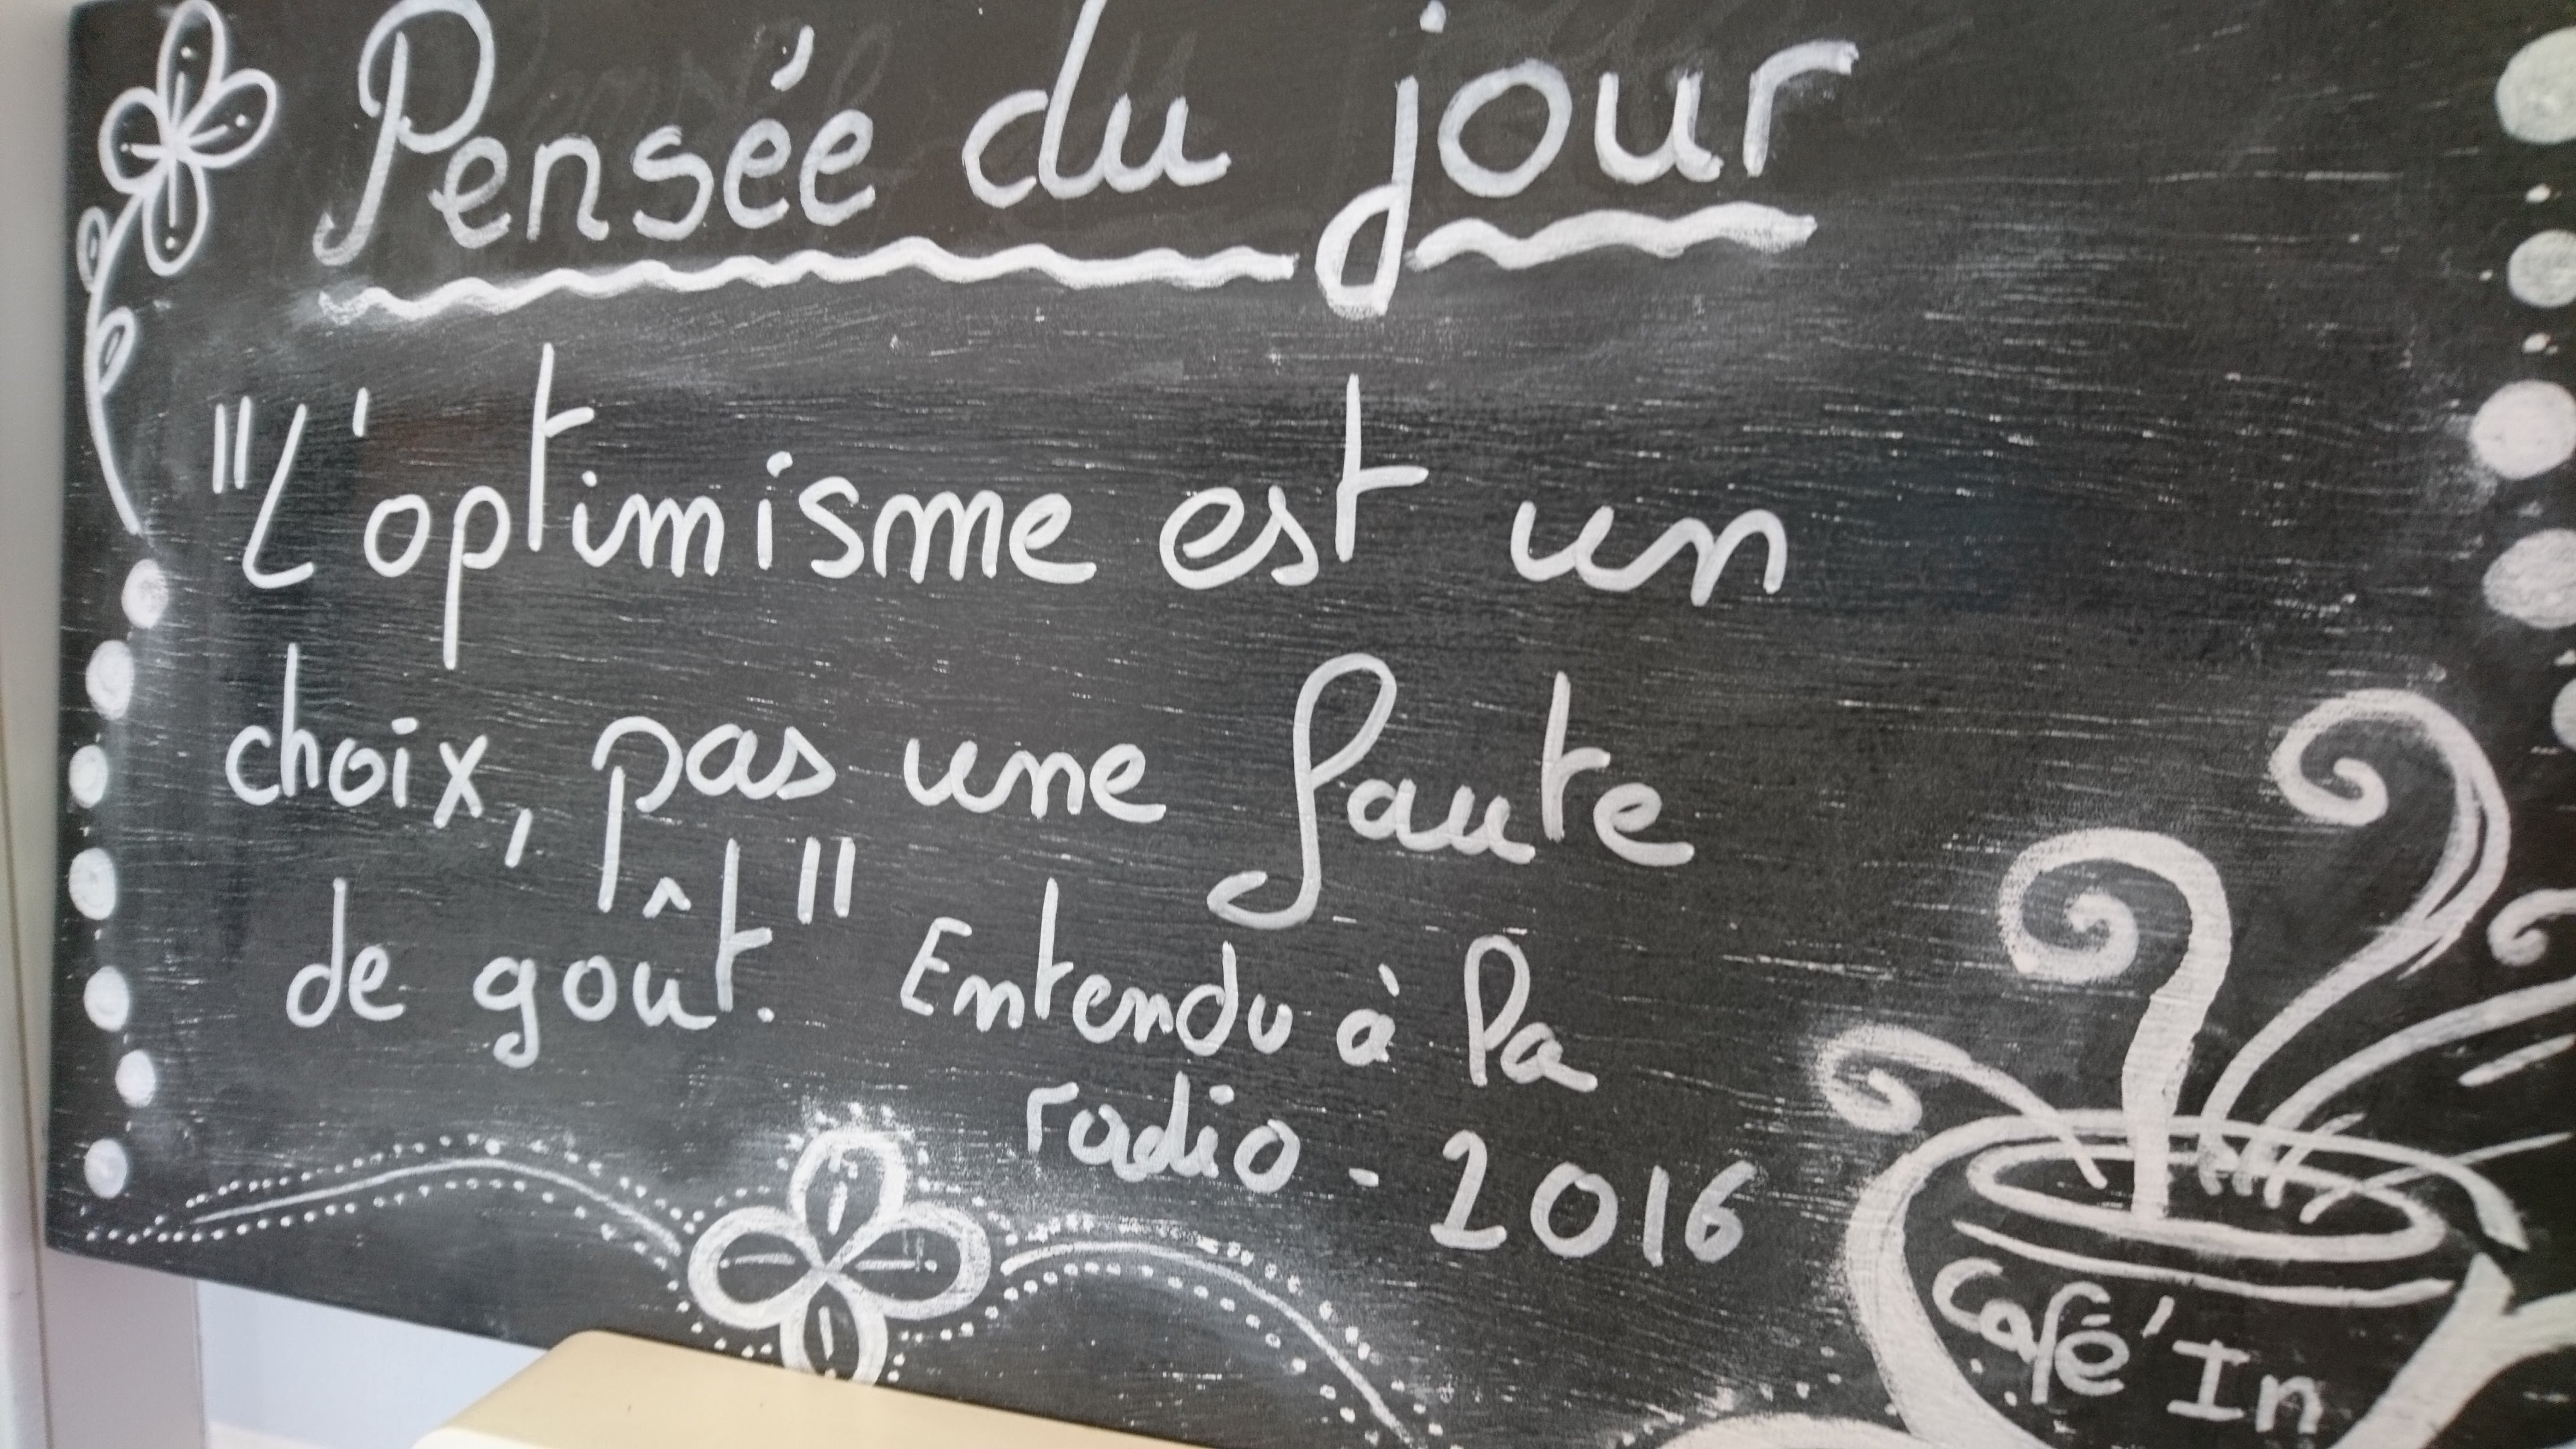 Pensée du jour
"L'optimisme est un
choix, pas une faute
de goût." Entendu à la
radio - 2016
Café'In